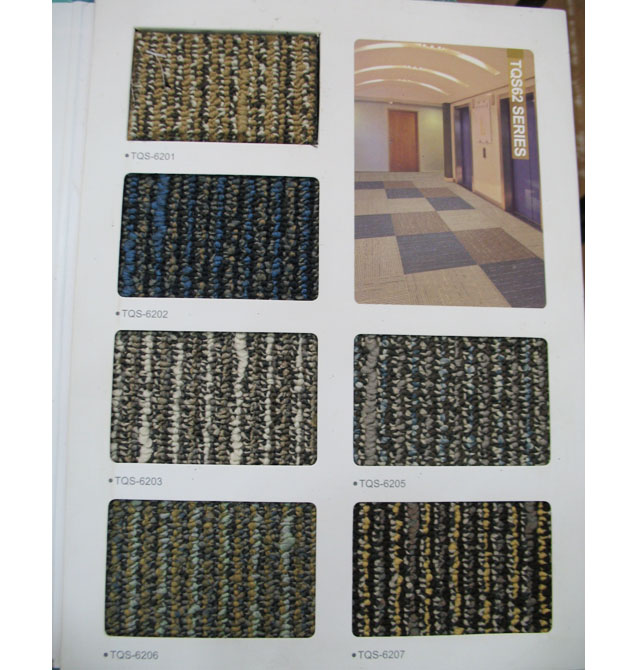 TQS62 SERIES
TQS-6201
TQS-6202
TQS-6203
TQS-6205
TQS-6206
TQS-6207